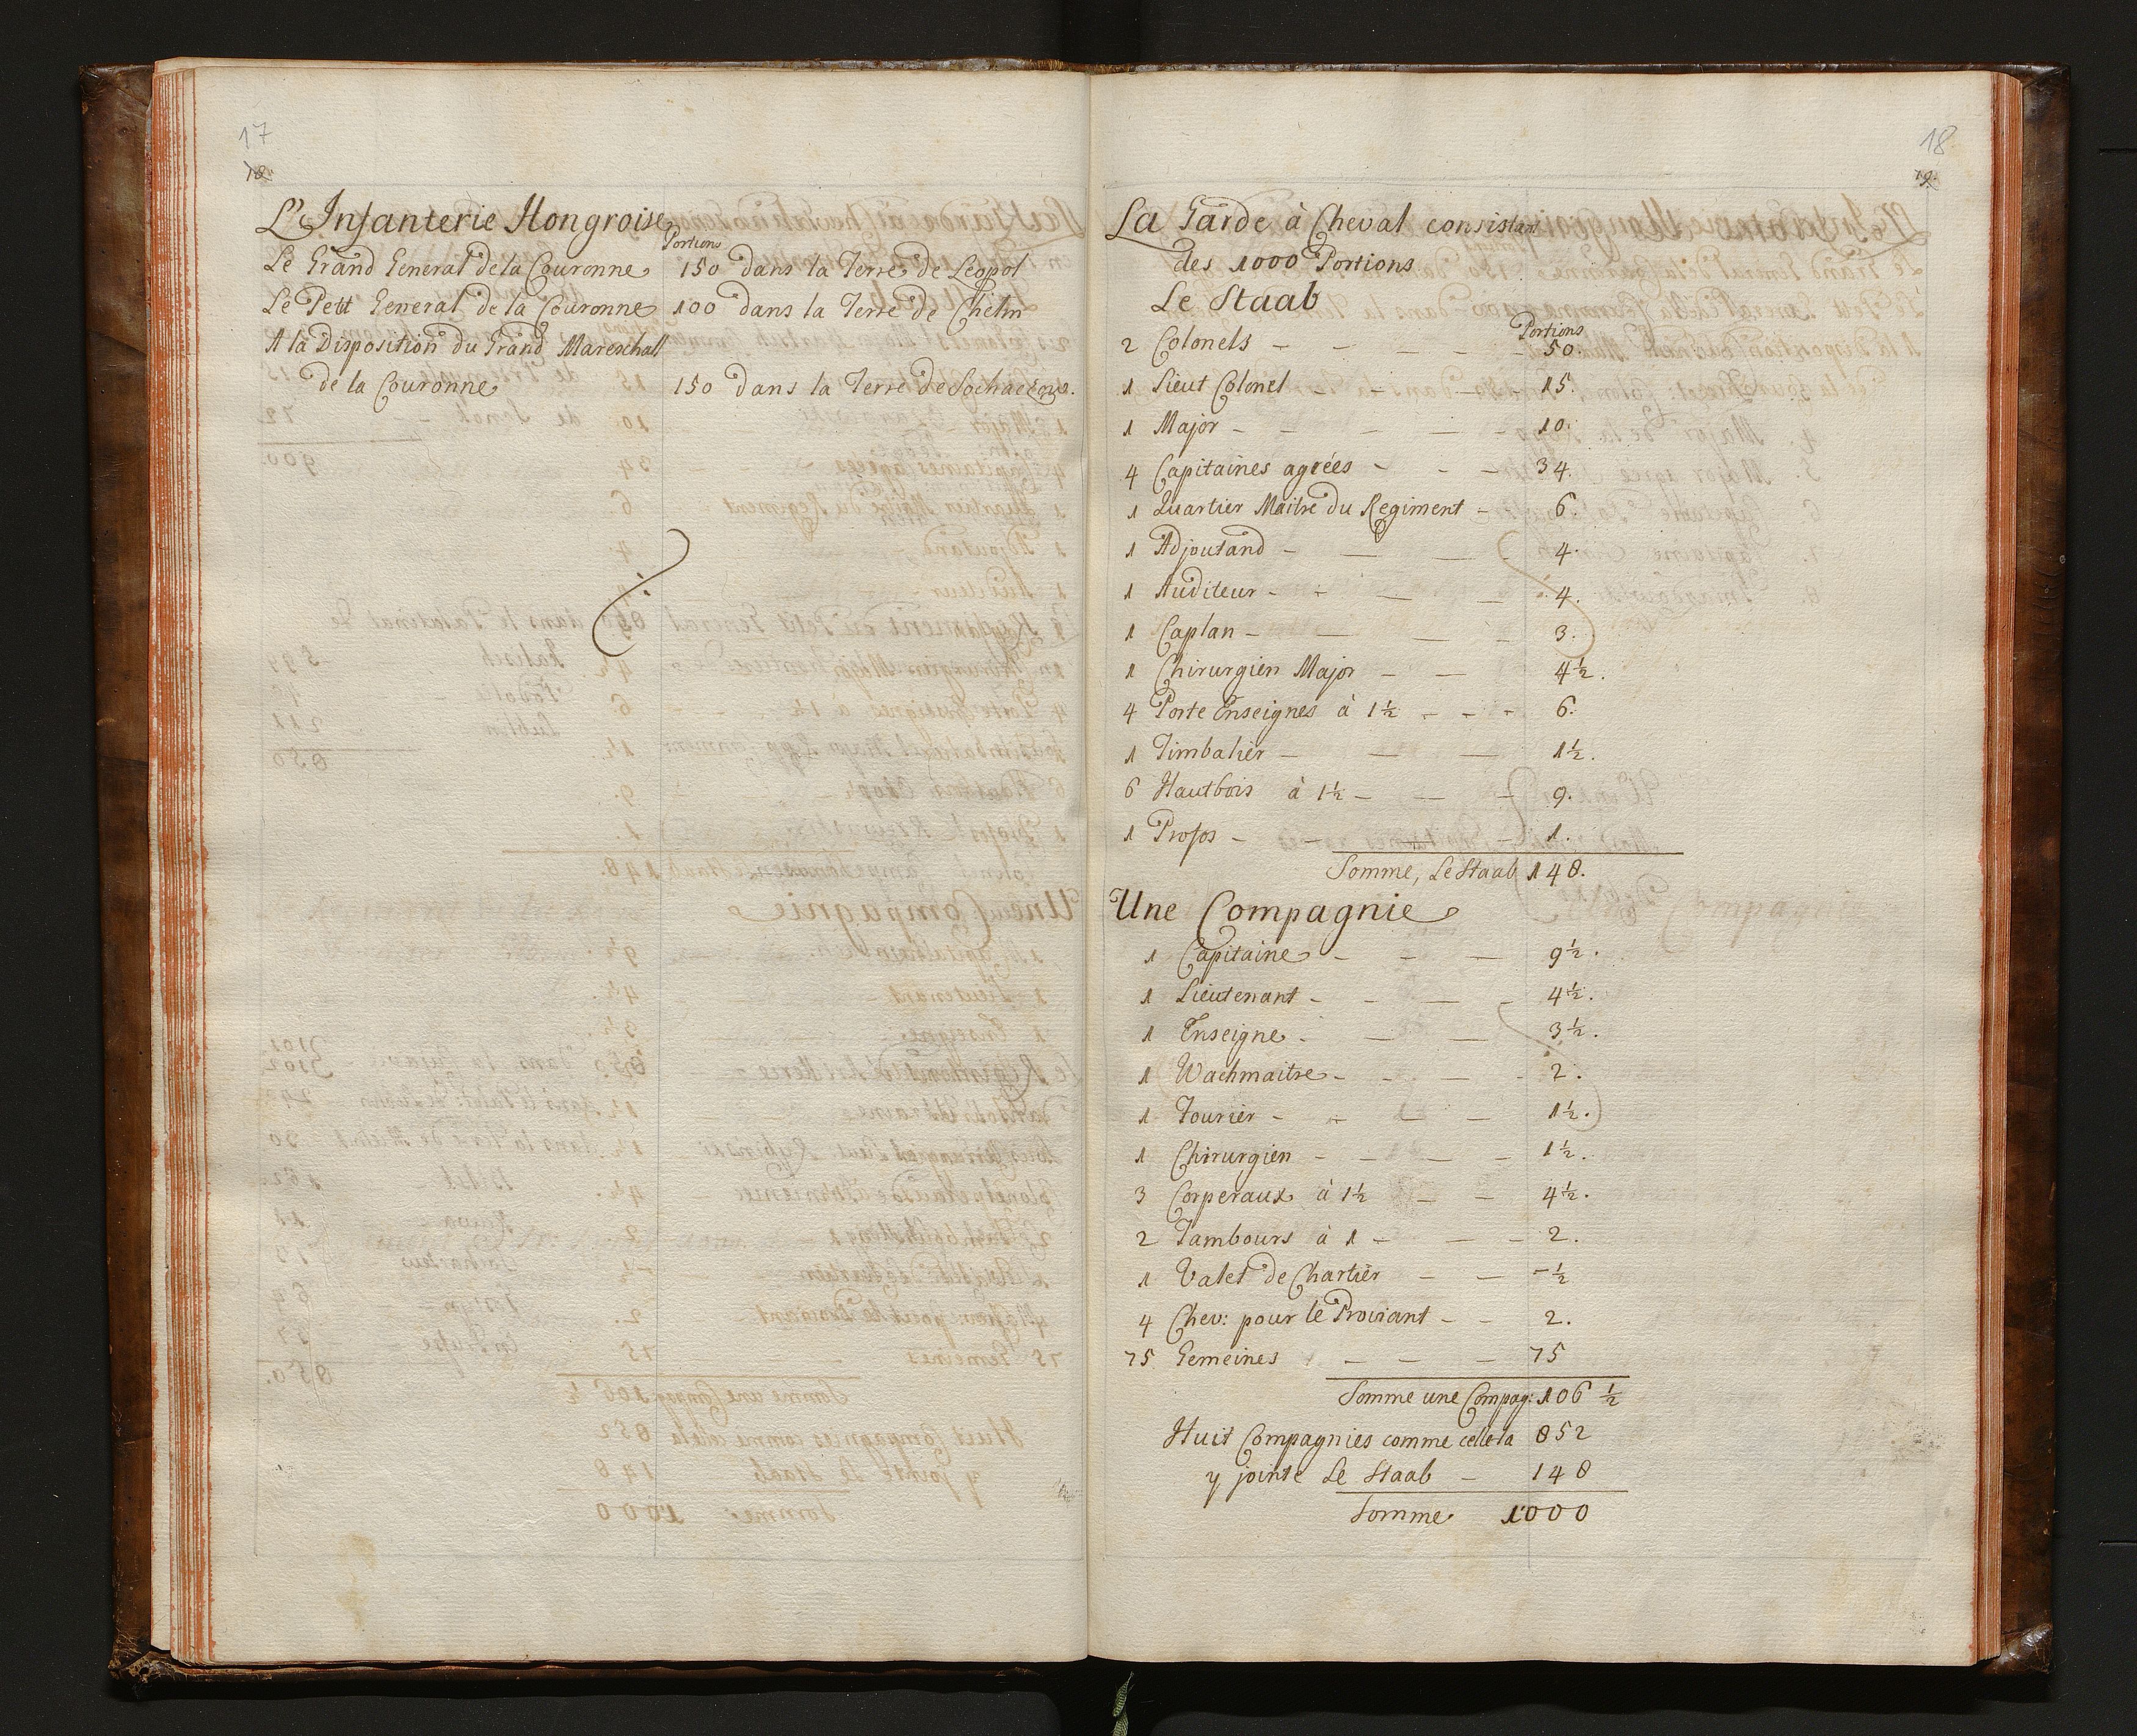 17
18.
L'Infanterie Hongroise
Portions
Le Grand General de la Couronne 150 dans la Terre de Leopol
Le Petit General de la Couronne 100 dans la Terre de Chelm
A la Disposition du Grand Mareschall
de la Couronne 150 dans la Terre de Sochaczow.
18
19.
La Garde à Cheval consistant
des 1000 Portions
Le Staab
Portions
2 Colonels - - - - - 50.
1 Lieut Colonel - - - - 15.
1 Major - - - - - 10.
4 Capitaines agrées - - - 34.
1 Quartier Maitre du Regiment - 6.
1 Adjoutand - - - 4.
1 Auditeur - - - - 4.
1 Caplan - - - - 3.
1 Chirurgien Major - - 4½.
4 Porte Enseignes à 1½ - - - 6.
1 Timbalier - - - 1½.
6 Hautbois à 1½ - - - 9.
1 Profos - - - 1.
Somme, Le Staab 148.
Une Compagnie
1 Capitaine - - - 9½.
1 Lieutenant - - - - 4½.
1 Enseigne - - - 3½.
1 Wachmaitre - - - - 2.
1 Fourier - - - - 1½.
1 Chirurgien - - - - 1½.
3 Corperaux à 1½ - - 4½.
2 Tambours à 1 - - - 2.
1 Valet de Chartier - - - ½
4 Chev: pour le Proviant - - 2.
75 Gemeines - - - 75
Somme une Compag: 106 ½
Huit Compagnies comme cellela 852
y jointe Le Staab - 148
Somme 1000